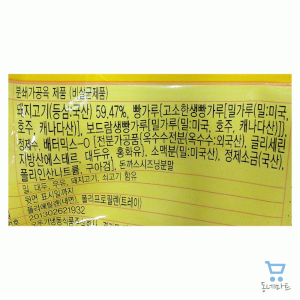 분쇄가공육 제품 (비살균제품)
돼지고기(등심:국산) 59.47%, 빵가루[고소함생빵가루[밀가루(밀:미국,
호주, 캐나다산)], 보드람생빵가루[밀가루(밀:미국, 호주, 캐나다산)]],
정제수, 배터믹스-O [전분가공품(옥수수전분(옥수수:외국산), 글리세린
지방산에스테르, 대두유, 홍화유), 소맥분(밀:미국산), 정제소금(국산),
폴리인산나트륨, 구아검], 돈까스시즈닝분말
밀, 대두, 우유, 돼지고기, 쇠고기 함유
표시일까지
폴리에틸렌(내면), 폴리프로필렌(트레이)
201302621932
동네마트